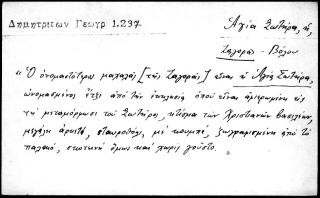 Δημητριεων Γεωγρ 1.237.
Ἁγία Σωτῆρα, ἡ,
Ζαγορά - Βόλου
« Ὁ ὀνομαστότερος μαχαλᾶς [τῆς Ζαγορᾶς] εἶναι ἡ Ἁγία Σωτῆρα,
ὠνομασμένος ἔτζι ἀπὸ τὴν ἐκκλησία ὁποῦ εἶναι ἀφιερωμένη εἰς
τὴ μεταμόρφωσι τοῦ Σωτῆρος, κτίσμα τῶν Χριστιανῶν βασιλέων,
μεγάλη ἀρκετά, σταυροθόλι, μὲ κουμπέ, ζωγραφισμένη ἀπὸ τὸ
παλαιό, σκοτεινὴ ὅμως καὶ χωρὶς γοῦστο.